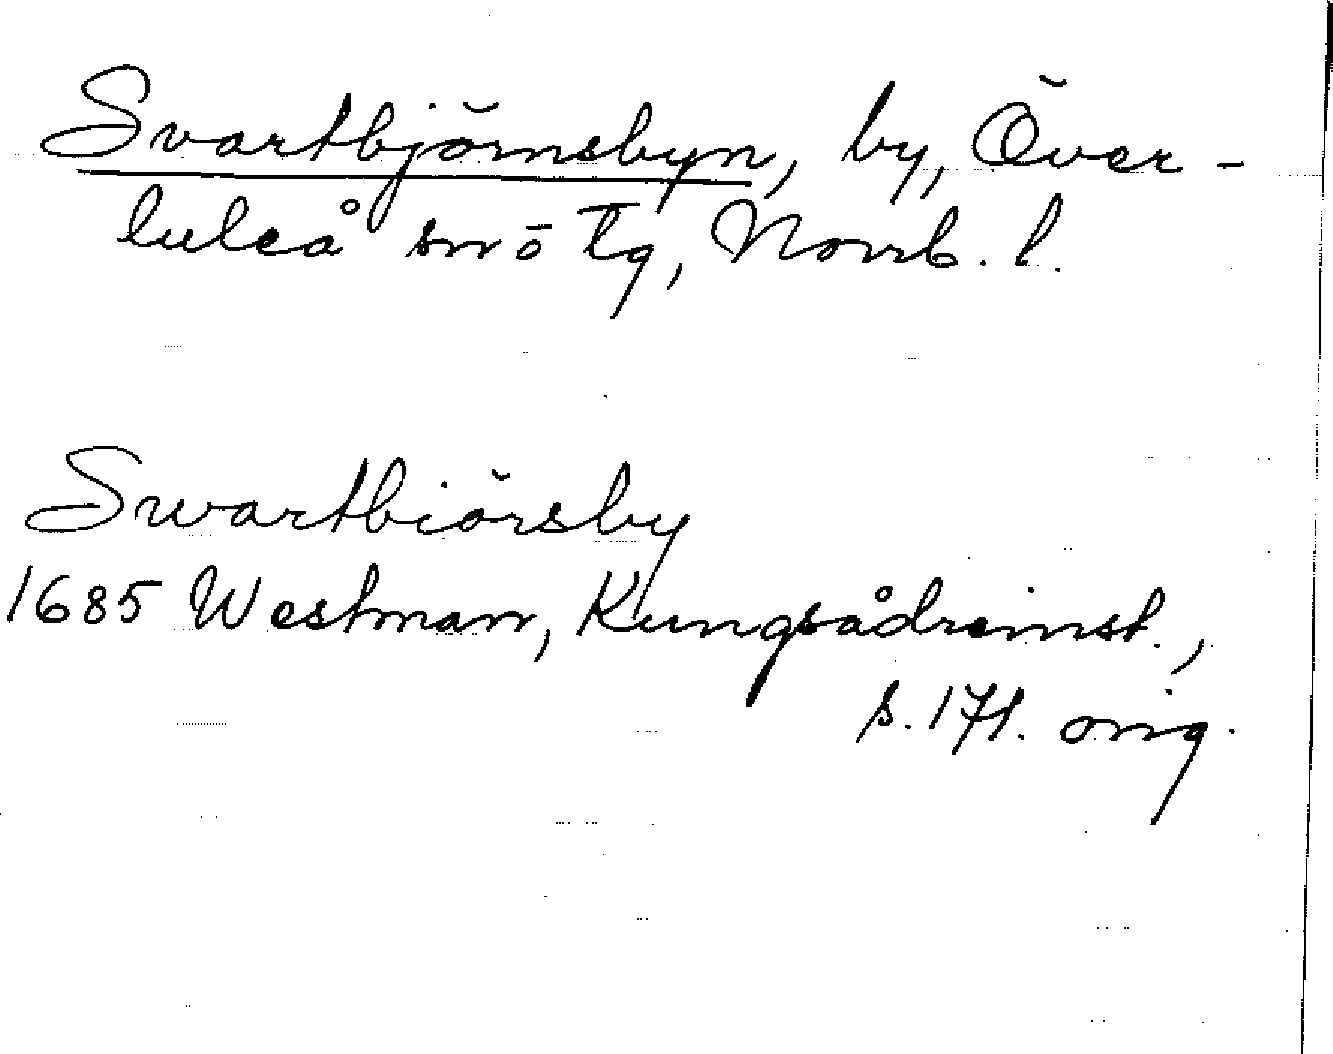 Svartbjörnsbyn, by, Över-
luleå sn o tg, Norrb. l.
Swartbiörsby
1685 Westman, Kungsådreinst.,
s. 171. orig.